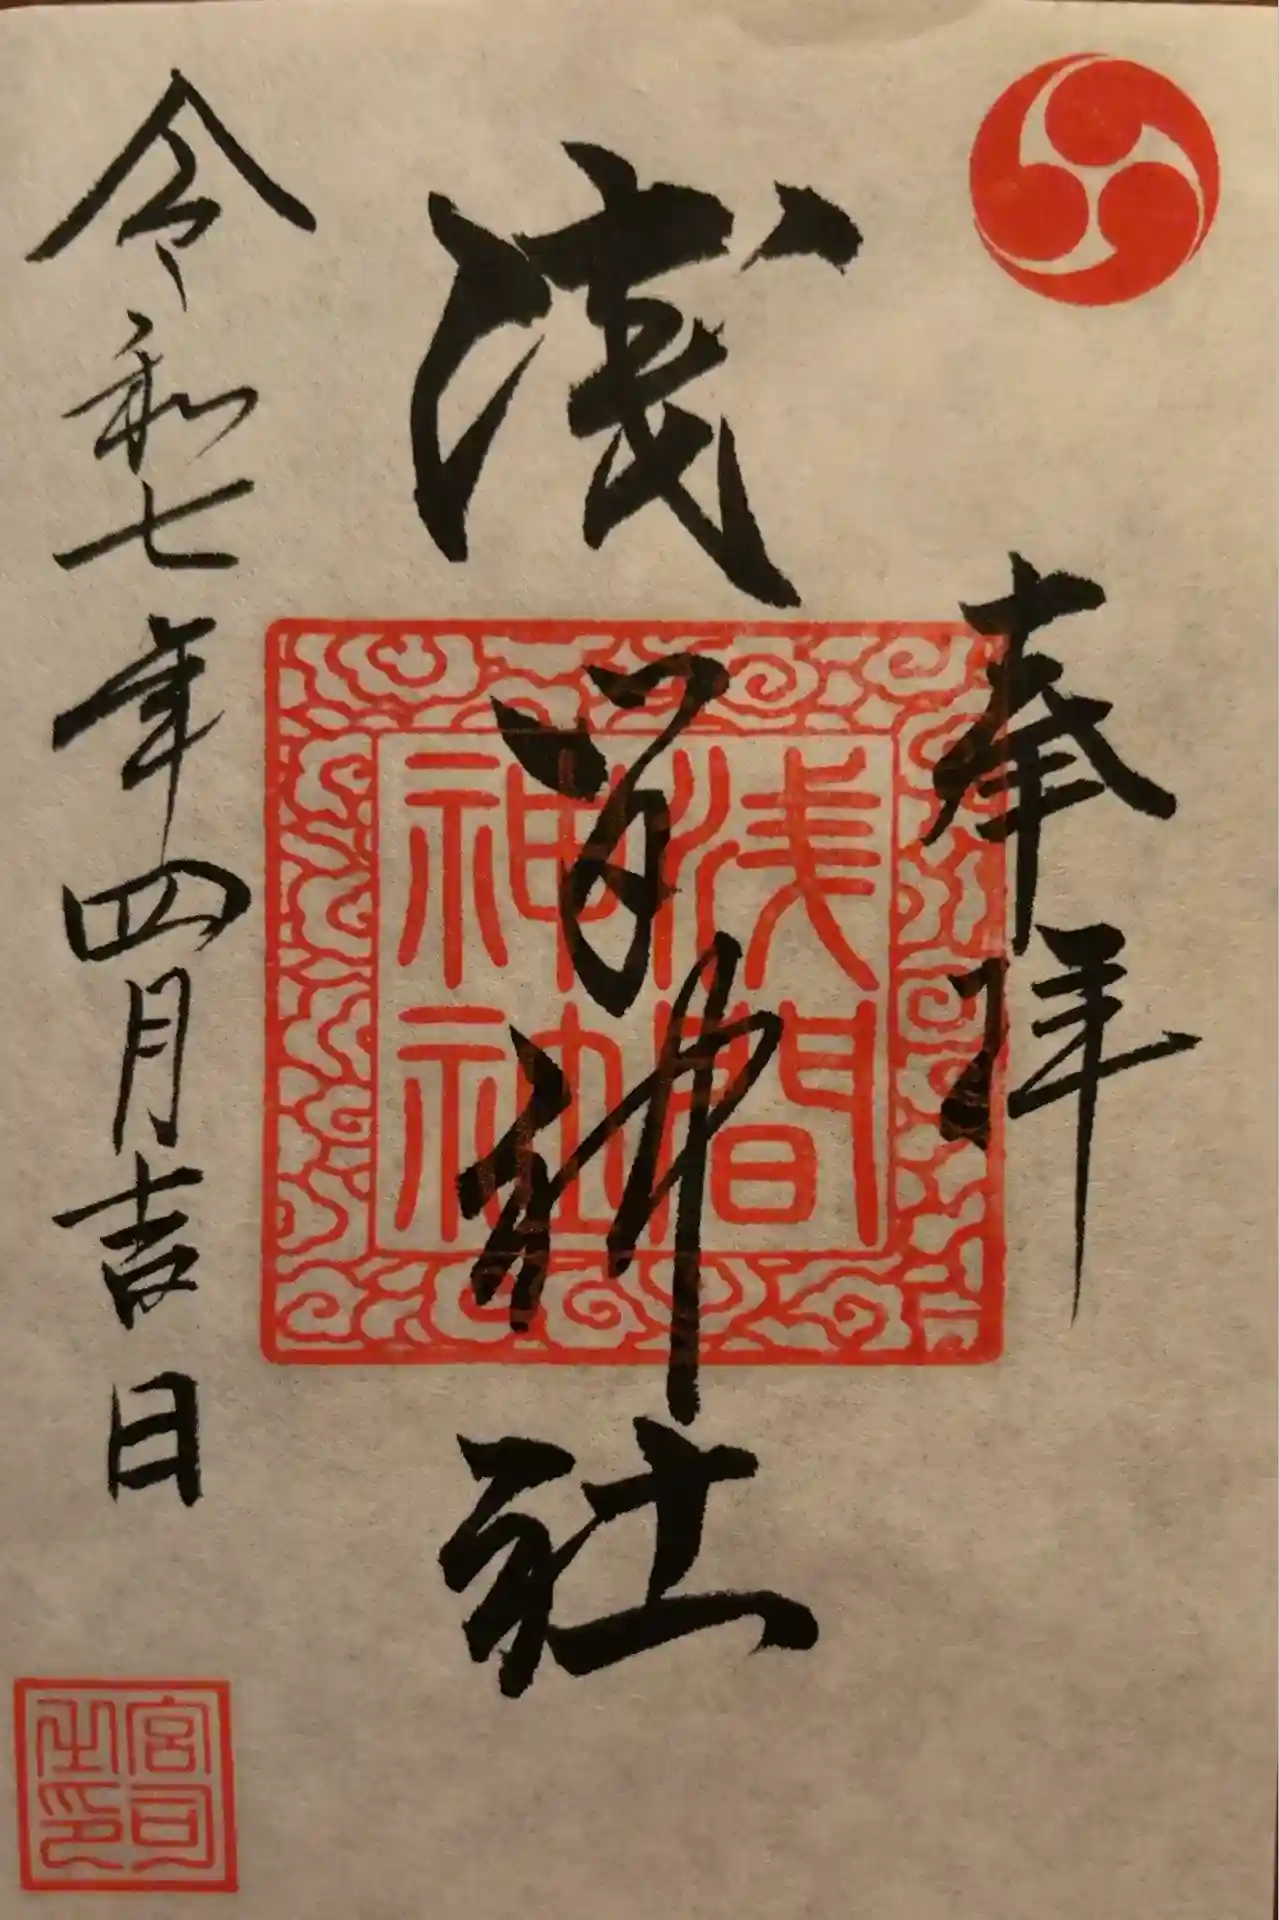 奉拝
浅間神社
浅間
神社
令和七年四月吉日
宮司
之印